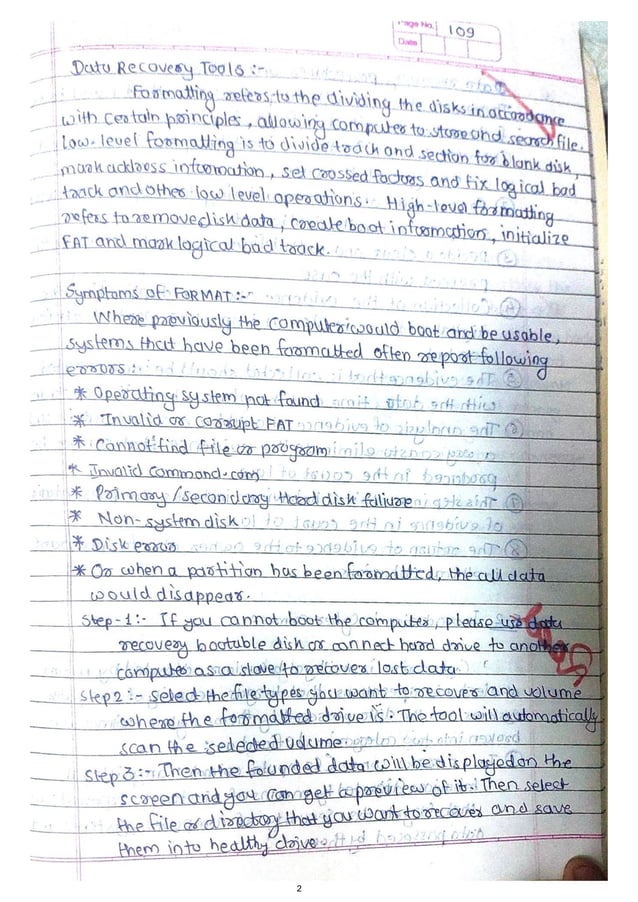 Page No. 109
Date
Data Recovery Tools :-
Formatting refers to the dividing the disks in accordance
with certain principles, allowing computer to store and search file.
Low-level formatting is to divide track and section for blank disk,
mark address information, set crossed factors and fix logical bad
track and other low level operations. High-level formatting
refers to remove disk data, create boot information, initialize
FAT and mark logical bad track.
Symptoms of FORMAT :-
Where previously the computer would boot and be usable,
systems that have been formatted often report following
errors :
* Operating system not found
* Invalid or corrupt FAT
* Cannot find file or program
* Invalid command.com
* Primary / secondary Hard disk faliure
* Non-system disk
* Disk error
* Or when a partition has been formatted, the all data
would disappear.
Step-1:- If you cannot boot the computer, please use data
recovery bootable disk or connect hard drive to another
computer as a slave to recover lost data
Step 2 :- Select the file types you want to recover and volume
where the formatted drive is. The tool will automatically
scan the selected volume
Step 3 :- Then the founded data will be displayed on the
screen and you can get a preview of it. Then select
the file or directory that you want to recover and save
them into healthy drive.
2